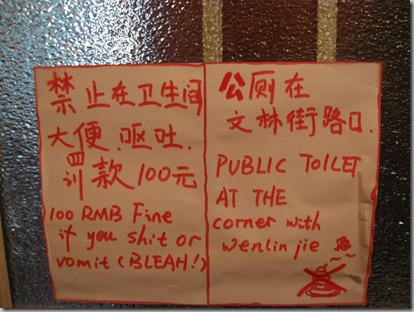 禁止在卫生间
大便.呕吐.
罚款100元
100 RMB Fine
if you shit or
vomit (BLEAH!)
公厕在
文林街路口.
PUBLIC TOILET
AT THE
corner with
wenlin jie